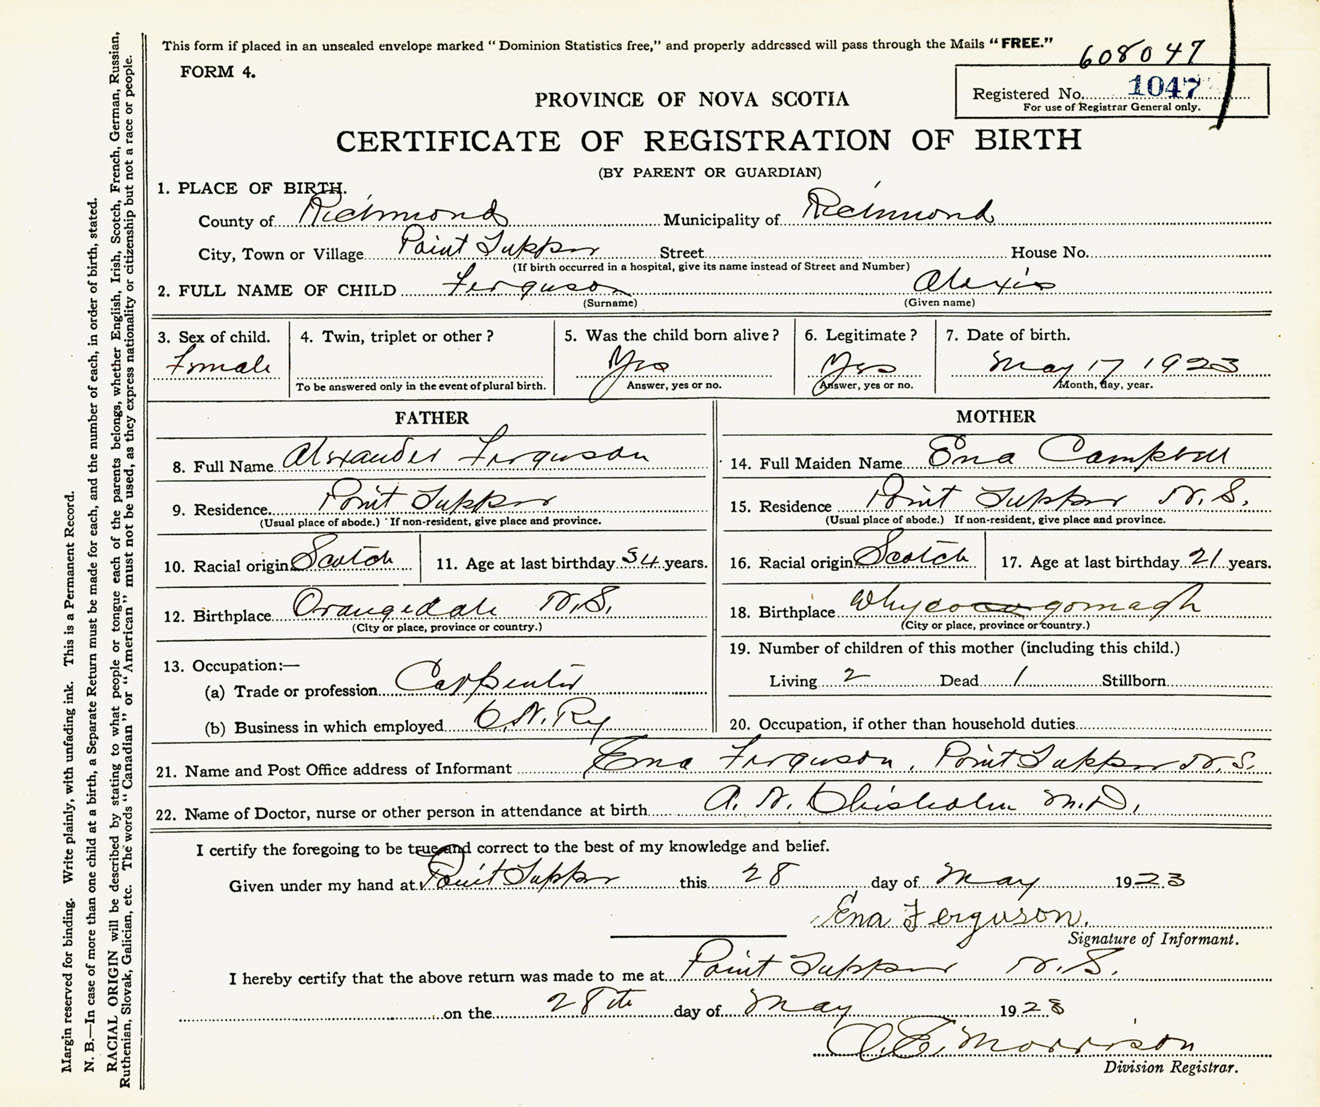 This form if placed in an unsealed envelope marked "Dominion Statistics free," and properly addressed will pass through the Mails "FREE."
608047
FORM 4.
Registered No. 1047
For use of Registrar General only.
PROVINCE OF NOVA SCOTIA
CERTIFICATE OF REGISTRATION OF BIRTH
(BY PARENT OR GUARDIAN)
1. PLACE OF BIRTH.
County of Richmond Municipality of Richmond
City, Town or Village Point Tupper Street House No.
(If birth occurred in a hospital, give its name instead of Street and Number)
2. FULL NAME OF CHILD Ferguson Alexis
(Surname) (Given name)
3. Sex of child. 4. Twin, triplet or other? 5. Was the child born alive? 6. Legitimate? 7. Date of birth.
Female Yes Yes May 17 1923
To be answered only in the event of plural birth. Answer, yes or no. Answer, yes or no. Month, day, year.
FATHER
8. Full Name Alexander Ferguson
9. Residence. Point Tupper
(Usual place of abode.) If non-resident, give place and province.
10. Racial origin Scotch 11. Age at last birthday 34 years.
12. Birthplace Orangedale N.S.
(City or place, province or country.)
13. Occupation:—
(a) Trade or profession Carpenter
(b) Business in which employed C.N.Ry
MOTHER
14. Full Maiden Name Ena Campbell
15. Residence Point Tupper N.S.
(Usual place of abode.) If non-resident, give place and province.
16. Racial origin Scotch 17. Age at last birthday 21 years.
18. Birthplace Whycocogomagh
(City or place, province or country.)
19. Number of children of this mother (including this child.)
Living 2 Dead 1 Stillborn
20. Occupation, if other than household duties
21. Name and Post Office address of Informant Ena Ferguson, Point Tupper N.S.
22. Name of Doctor, nurse or other person in attendance at birth A. N. Chisholm M.D.
I certify the foregoing to be true and correct to the best of my knowledge and belief.
Given under my hand at Point Tupper this 28 day of May 1923
Ena Ferguson.
Signature of Informant.
I hereby certify that the above return was made to me at Point Tupper N.S.
on the 28th day of May 1923
Morrison
Division Registrar.
Margin reserved for binding. Write plainly, with unfading ink. This is a Permanent Record.
N. B.—In case of more than one child at a birth, a Separate Return must be made for each, and the number of each, in order of birth, stated.
RACIAL ORIGIN will be described by stating to what people or tongue each of the parents belongs, whether English, Irish, Scotch, French, German, Russian,
Ruthenian, Slovak, Galician, etc. The words "Canadian" or "American" must not be used, as they express nationality or citizenship but not a race or people.